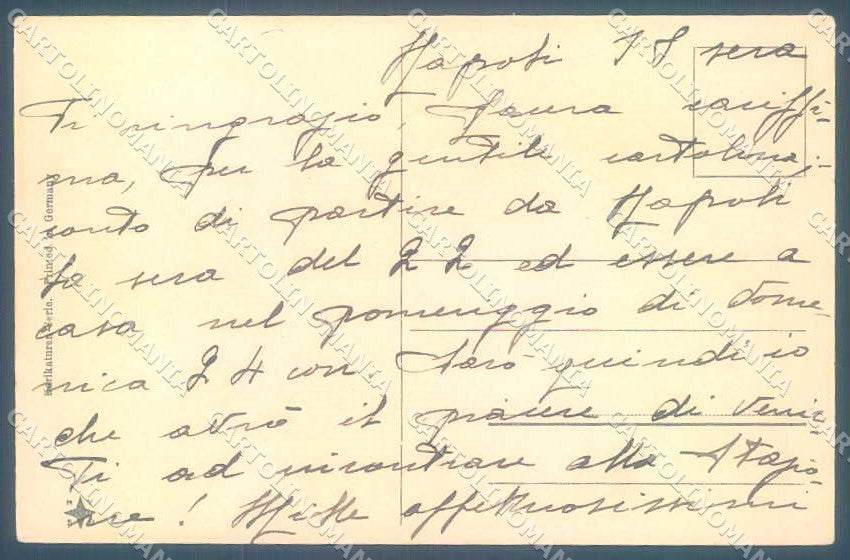 Napoli 18 sera
Ti ringrazio, Laura carissi-
ma, per la gentile cartolina;
conto di partire da Napoli
la sera del 22 ed essere a
casa nel pomeriggio di dome-
nica 24 con Sarò quindi io
che avrò il piacere di venir
Ti ad incontrare alla Stazio-
ne! Mille affettuosissimi
Karikaturen Serie. Printed in Germany
CARTOLINOMANIA